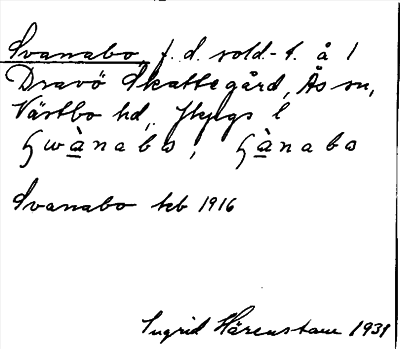 Svanabo, f. d. sold.-t. å 1
Dravö Skattegård, Ås sn,
Västbo hd, Jkpgs l
Swànabo, Sànabo
Svanabo tkb 1916
Ingrid Härenstam 1931